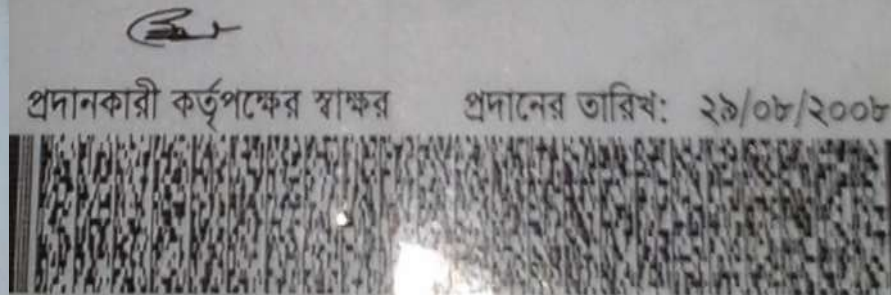 প্রদানকারী কর্তৃপক্ষের স্বাক্ষর প্রদানের তারিখ: ২৯/০৮/২০০৮